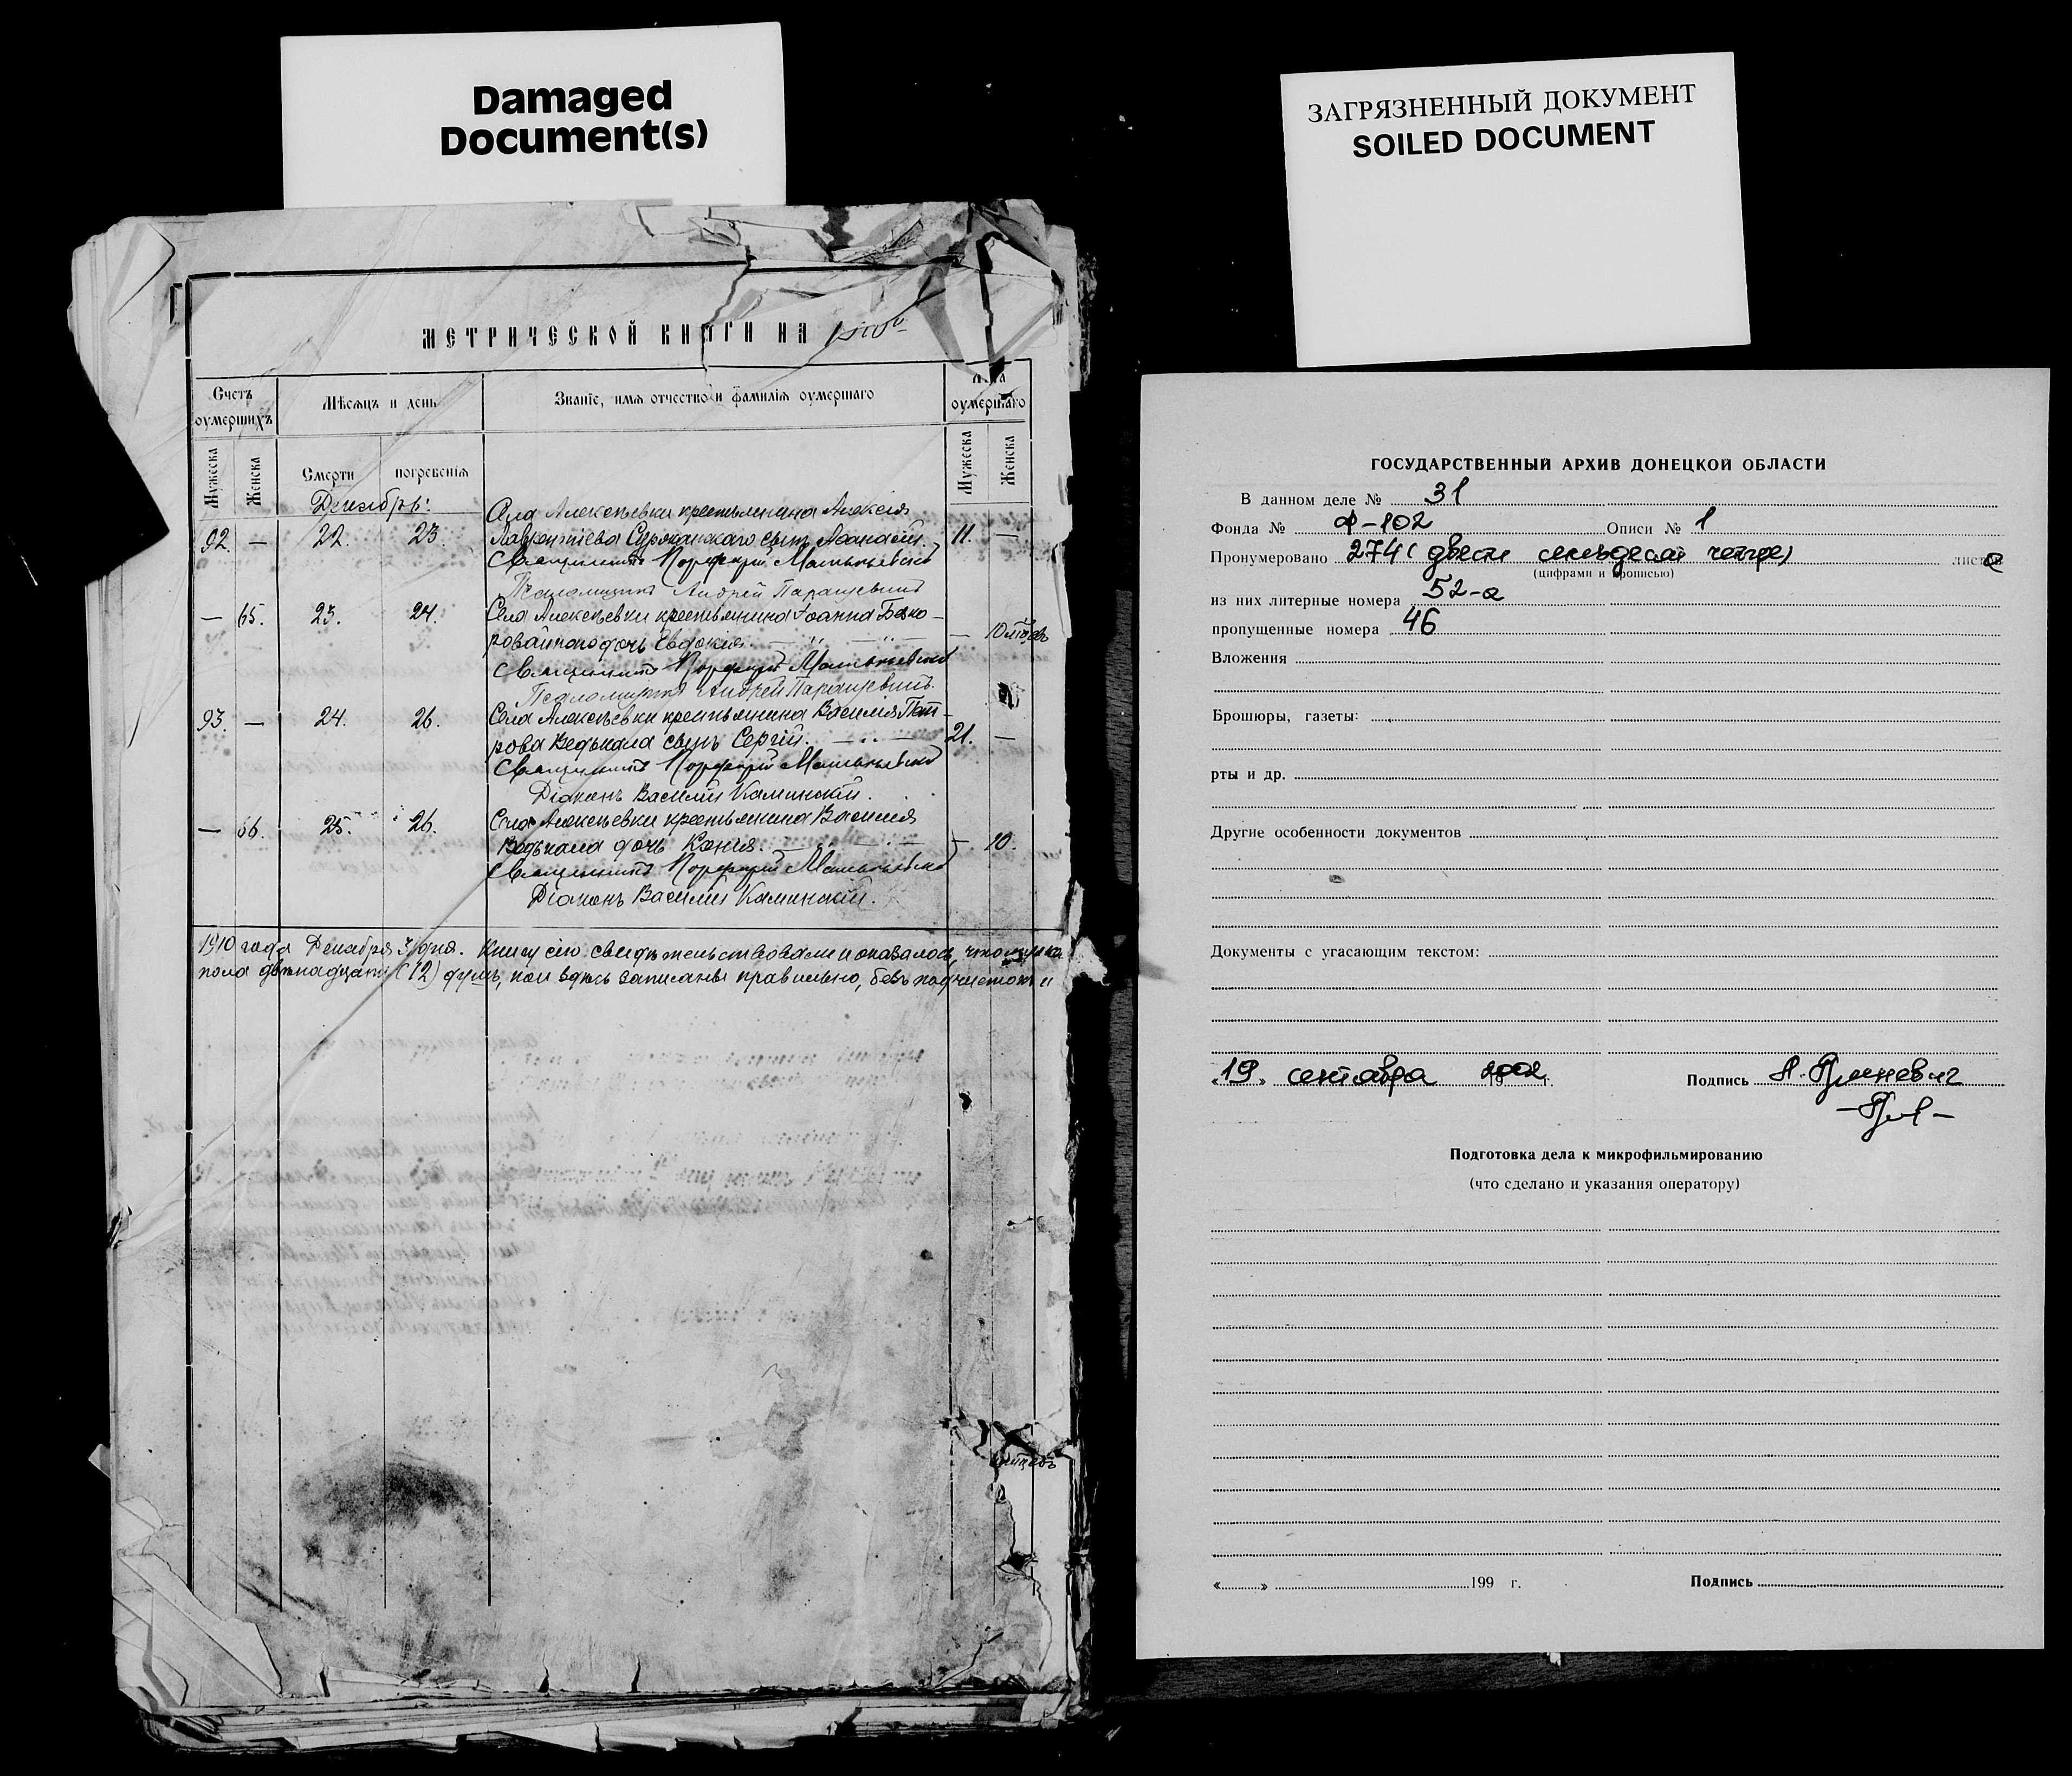 Damaged
Document(s)
ЗАГРЯЗНЕННЫЙ ДОКУМЕНТ
SOILED DOCUMENT
МЕТРИЧЕСКОЙ КНИГИ НА
Счетъ оумершихъ
Мѣсяцъ и день
Званіе, имя отчество и фамилія оумершаго
оумершаго
Мужеска
Женска
Смерти
погребенія
Мужеска
Женска
Декабрь:
Села Алексѣевки крестьянина Алексія
92. — 22. 23. Лаврентіева сынъ Аѳанасій. 11. —
Священникъ Порфирій
Псаломщикъ Андрей
— 65. 23. 24. Села Алексѣевки крестьянина Іоанна
дочь Евдокія. — 10 мѣсяц
Священникъ Порфирій
Псаломщикъ Андрей
93. — 24. 26. Села Алексѣевки крестьянина Василія Пет-
рова Ведькала сынъ Сергій. 21. —
Священникъ Порфирій
Діаконъ Василій Каминскій.
— 66. 25. 26. Села Алексѣевки крестьянина Василія
Ведькала дочь Ксенія. — 10.
Священникъ Порфирій
Діаконъ Василій Каминскій.
1910 года Декабря 31 дня. Книгу сію свидѣтельствовали и оказалось, что
пола двѣнадцать (12) душъ, кои здѣсь записаны правильно, безъ подчистокъ и
ГОСУДАРСТВЕННЫЙ АРХИВ ДОНЕЦКОЙ ОБЛАСТИ
В данном деле № 31
Фонда № Ф-102 Описи № 1
Пронумеровано 274 (двести семьдесят четыре) листа
(цифрами и прописью)
из них литерные номера 52-а
пропущенные номера 46
Вложения
Брошюры, газеты:
рты и др.
Другие особенности документов
Документы с угасающим текстом:
«19» сентября 2002 г. Подпись
Подготовка дела к микрофильмированию
(что сделано и указания оператору)
« » 199 г. Подпись